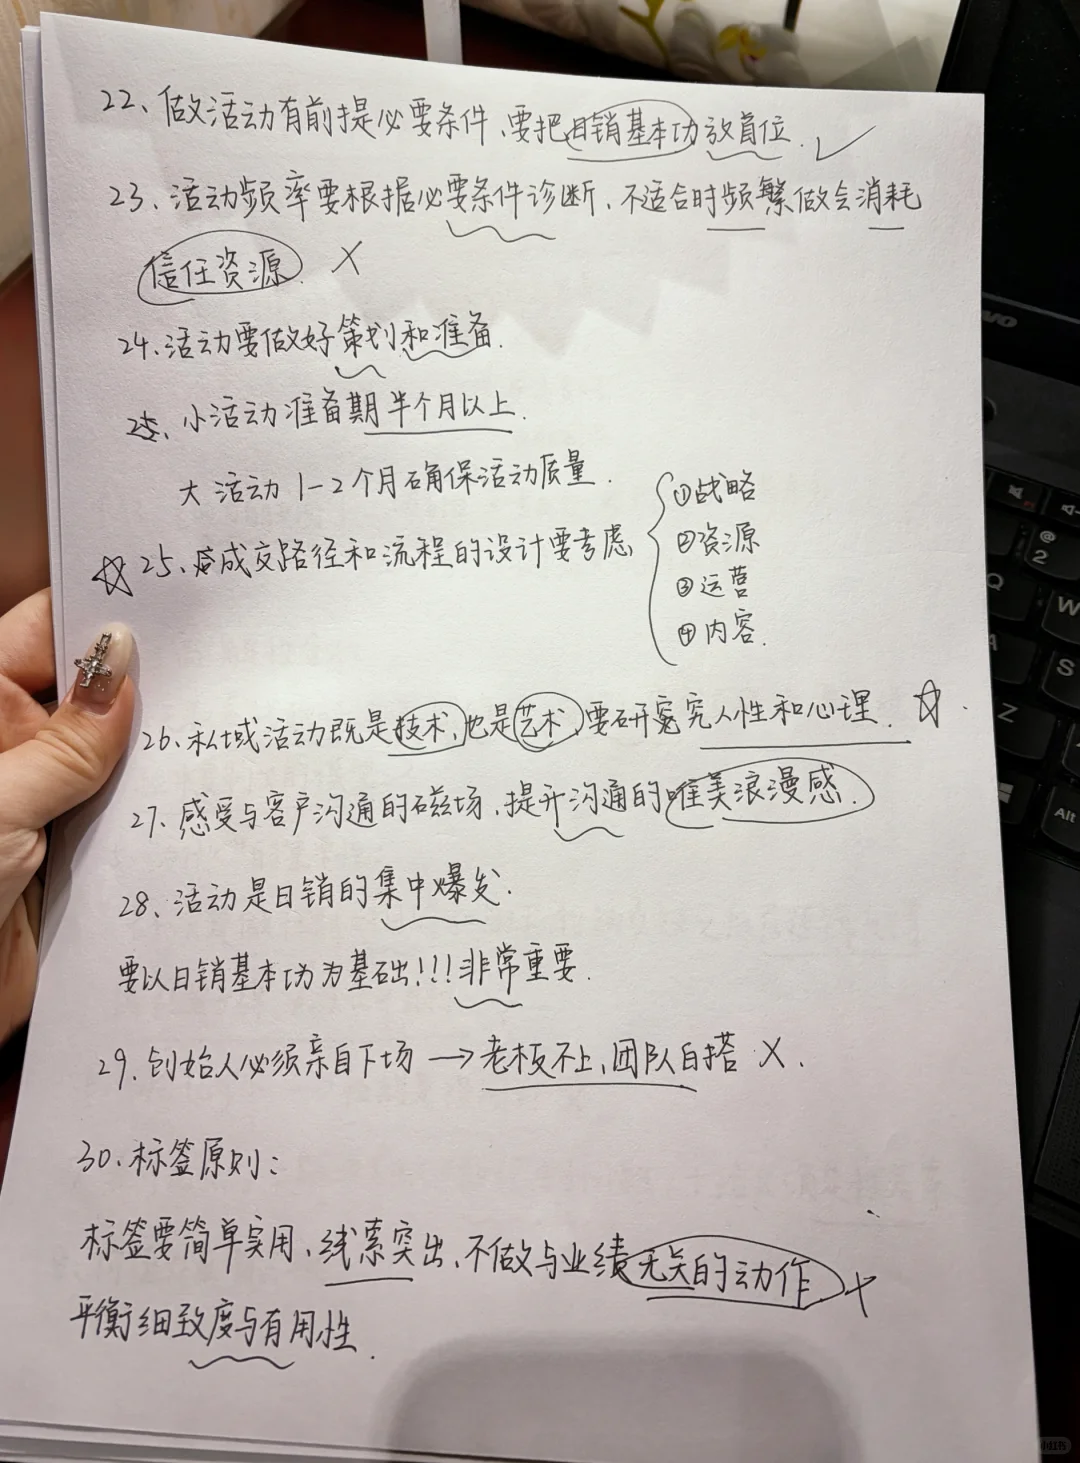 22、做活动有前提必要条件、要把日销基本功放首位.
23、活动频率要根据必要条件诊断、不适合时频繁做会消耗
信任资源.
24、活动要做好策划和准备.
25、小活动准备期半个月以上.
大活动1-2个月确保活动质量.
25、成交路径和流程的设计要考虑
①战略
②资源
③运营
④内容.
26、私域活动既是技术,也是艺术,要研究人性和心理.
27、感受与客户沟通的磁场、提升沟通的唯美浪漫感.
28、活动是日销的集中爆发.
要以日销基本功为基础!!!非常重要.
29、创始人必须亲自下场→老板不上、团队白搭 X.
30、标签原则:
标签要简单实用、线索突出、不做与业绩无关的动作
平衡细致度与有用性.
NOVO
@
2
Q
W
A
S
Z
Alt
小红书